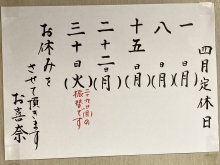 四月定休日
一日(月)
八日(月)
十五日(月)
二十二日(月)
三十日(火)
二十九日(月)の
振替です
お休みを
させて頂きます
お喜奈